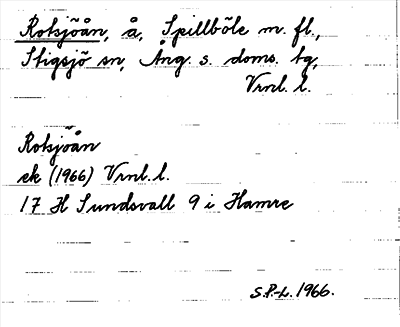 Rotsjöån, å, Spillböle m. fl.,
Stigsjö sn, Ång. s. doms. tg,
Vrnl. l.
Rotsjöån
ek (1966) Vrnl. l.
17 H Sundsvall 9 i Hamre
S.P.-L. 1966.